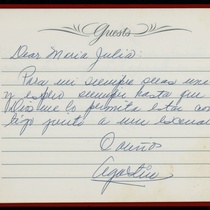 Guests
Dear Maria Julia:
Para mi siempre seras una
y espero siempre hasta que
Dios me lo permita estar con
tigo junto a un escenar
Cariños
Agustin